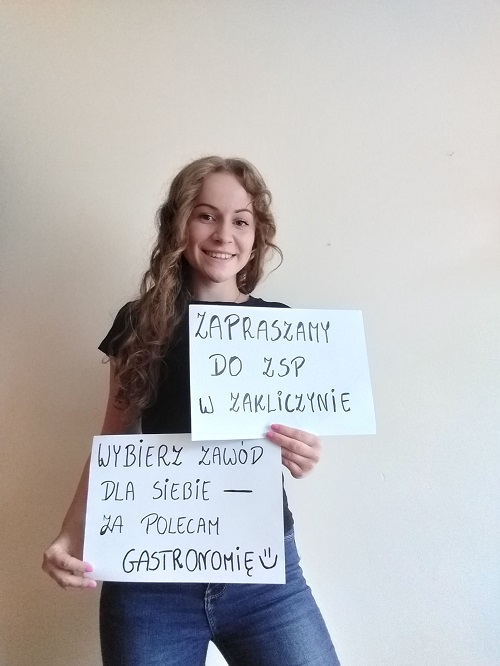 ZAPRASZAMY
DO ZSP
W ZAKLICZYNIE
WYBIERZ ZAWÓD
DLA SIEBIE —
ZA POLECAM
GASTRONOMIĘ